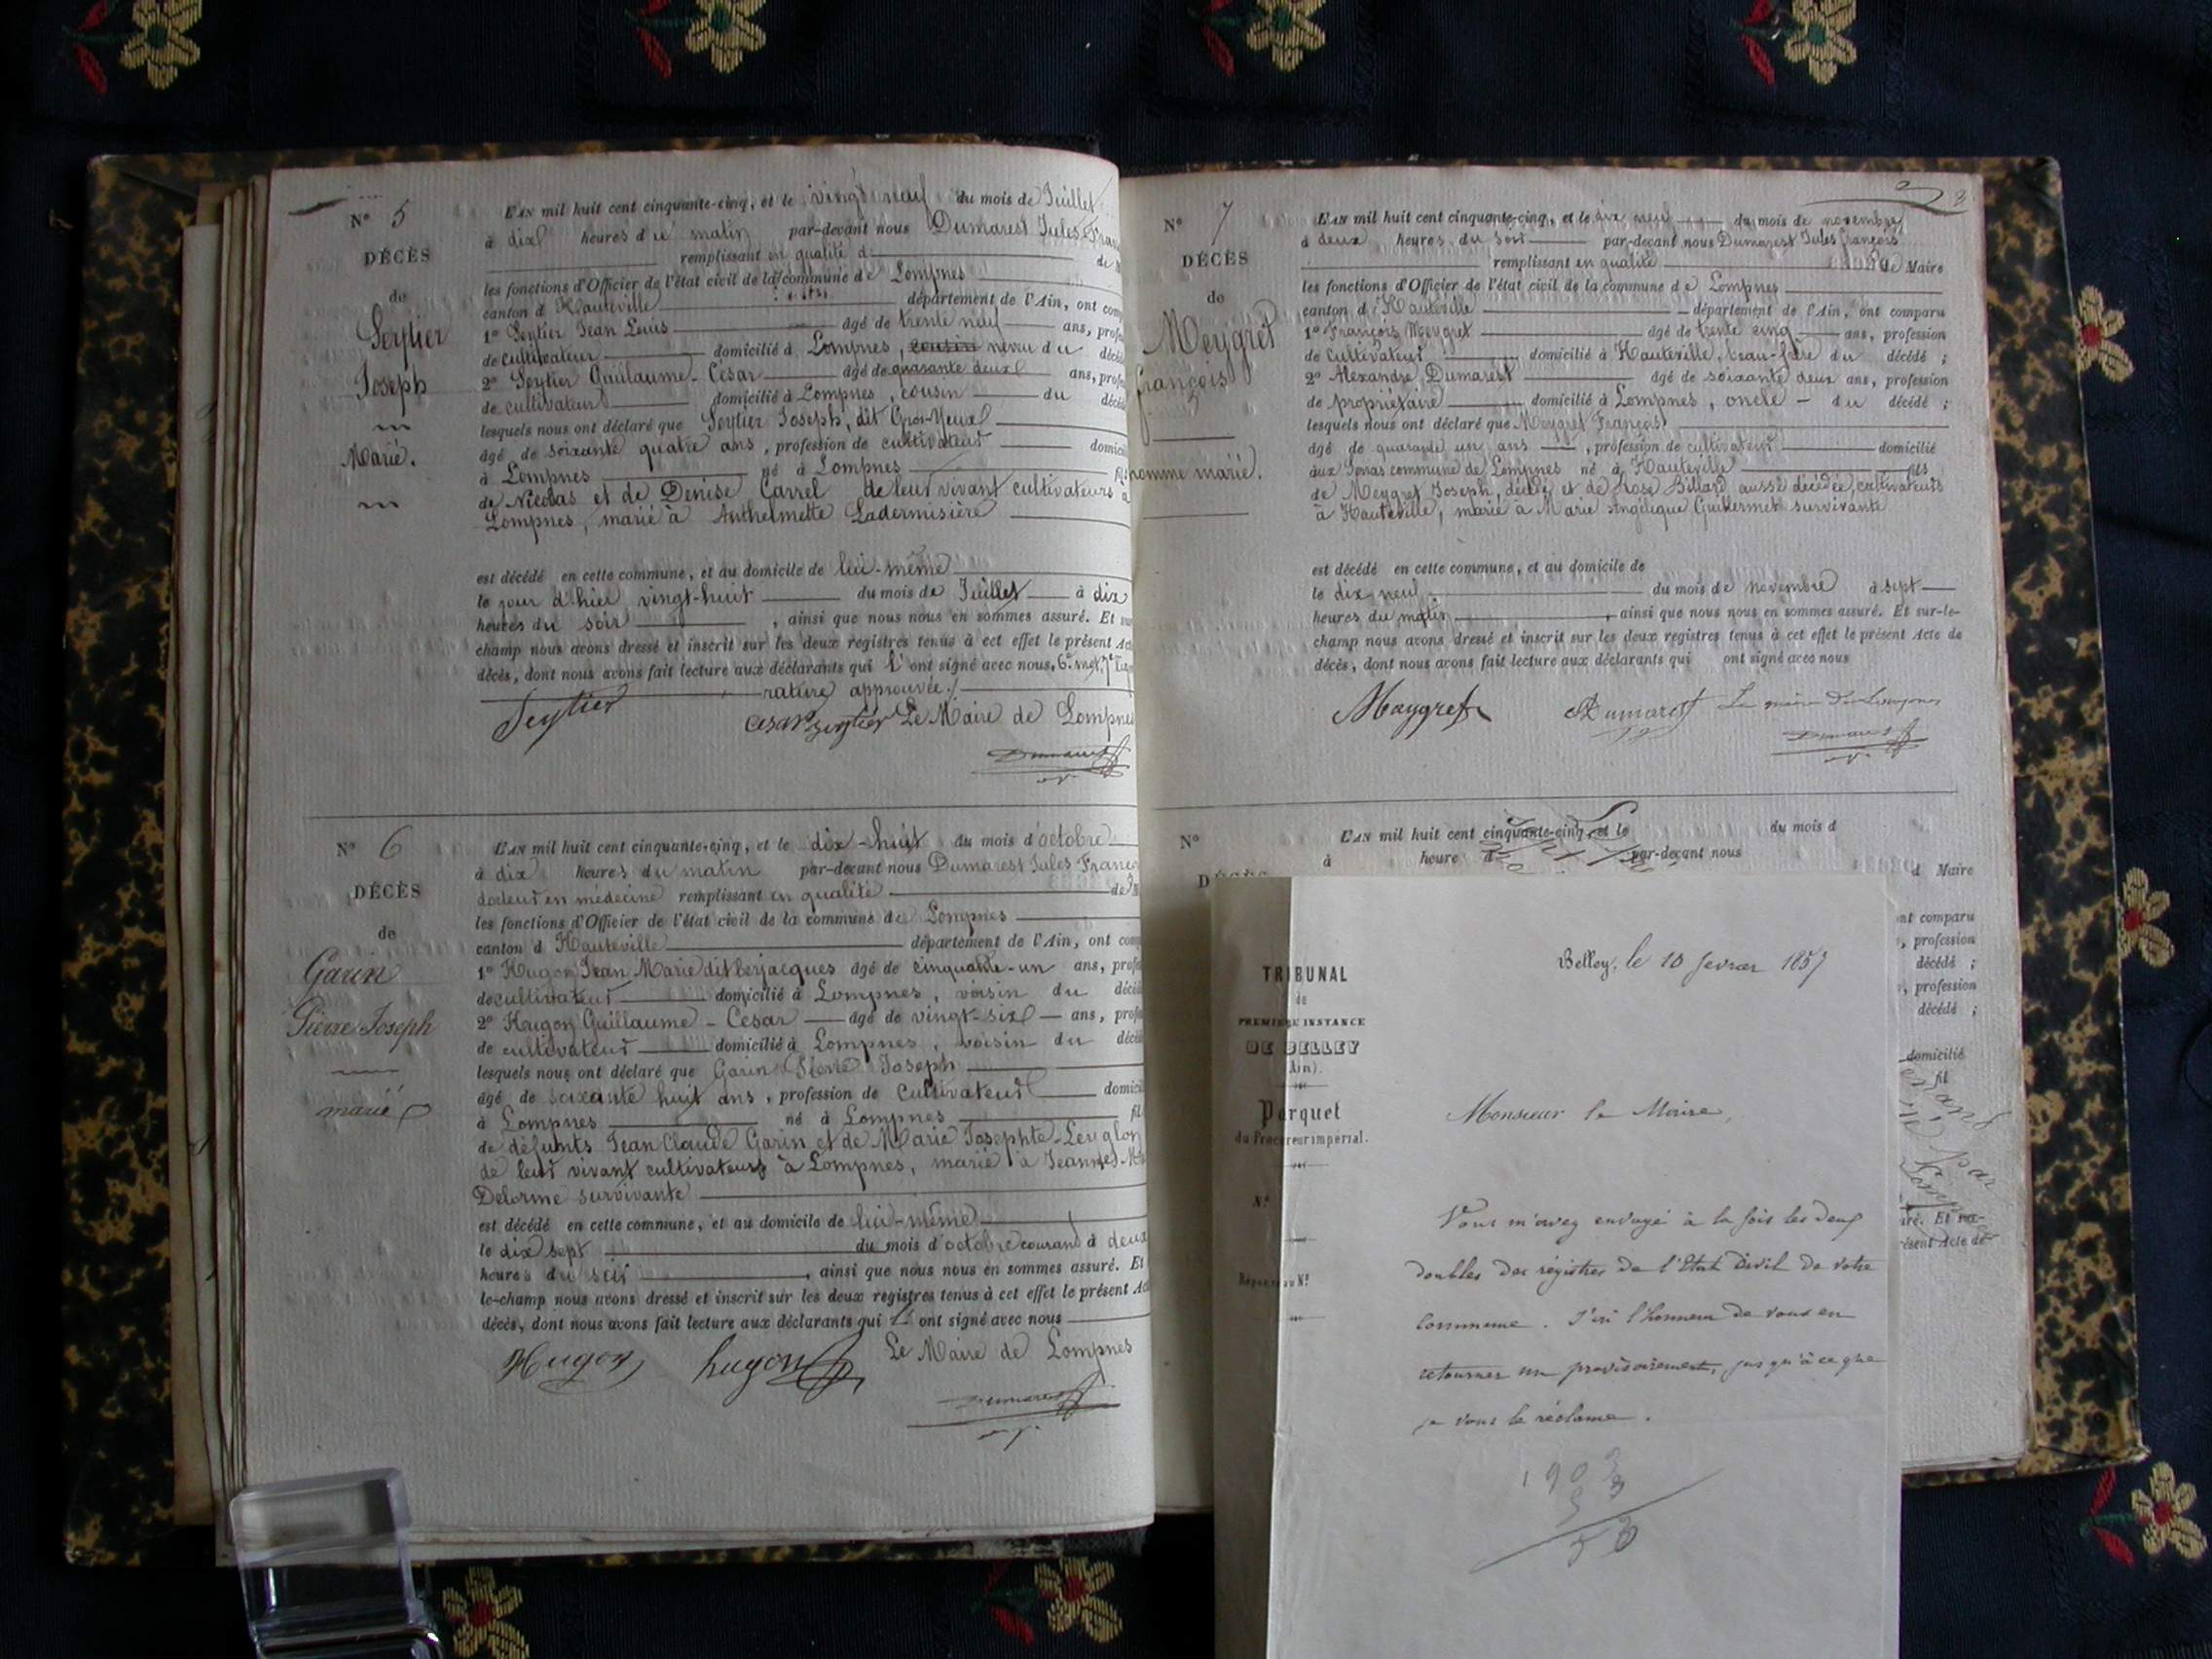 N° 5
DÉCÈS
de
Seytier
Joseph
Marié.
L'AN mil huit cent cinquante-cinq, et le vingt neuf du mois de Juillet
à dix heures du matin par-devant nous Dumarest Jules Fran
remplissant en qualité d
les fonctions d'Officier de l'état civil de la commune de Lompnes
canton d'Hauteville département de l'Ain, ont com
1° Seytier Jean Louis âgé de trente neuf ans, profe
de cultivateur domicilié à Lompnes, cousin neveu du décé
2° Seytier Guillaume-César âgé de quarante deux ans, profe
de cultivateur domicilié à Lompnes, cousin du décéd
lesquels nous ont déclaré que Seytier Joseph, dit Gros-Yeux
âgé de soixante quatre ans, profession de cultivateur domici
à Lompnes né à Lompnes fil
de Nicolas et de Denise Carrel de leur vivant cultivateurs à
Lompnes, marié à Anthelmette Ladermisière
est décédé en cette commune, et au domicile de lui-même
le jour d'hier vingt-huit du mois de Juillet à dix
heures du soir, ainsi que nous nous en sommes assuré. Et sur
champ nous avons dressé et inscrit sur les deux registres tenus à cet effet le présent Act
décès, dont nous avons fait lecture aux déclarants qui l' ont signé avec nous,
rature approuvée ./.
Seytier César Seytier Le Maire de Lompnes
Dumarest
N° 6
DÉCÈS
de
Garin
Pierre Joseph
marié
L'AN mil huit cent cinquante-cinq, et le dix-huit du mois d'octobre
à dix heures du matin par-devant nous Dumarest Jules Franço
docteur en médecine remplissant en qualité de M
les fonctions d'Officier de l'état civil de la commune de Lompnes
canton d'Hauteville département de l'Ain, ont com
1° Hugon Jean Marie dit Berjacques âgé de cinquante-un ans, profe
de cultivateur domicilié à Lompnes, voisin du décéd
2° Hugon Guillaume-César âgé de vingt-six ans, profe
de cultivateur domicilié à Lompnes, voisin du décéd
lesquels nous ont déclaré que Garin Pierre Joseph
âgé de soixante huit ans, profession de cultivateur domici
à Lompnes né à Lompnes fil
de défunts Jean Claude Garin et de Marie Josephte
de leur vivant cultivateurs à Lompnes, marié à Jeanne
Delorme survivante
est décédé en cette commune, et au domicile de lui-même
le dix sept du mois d'octobre courant à deux
heures du soir, ainsi que nous nous en sommes assuré. Et
le-champ nous avons dressé et inscrit sur les deux registres tenus à cet effet le présent Ac
décès, dont nous avons fait lecture aux déclarants qui l' ont signé avec nous
Hugon hugon Le Maire de Lompnes
Dumarest
N° 7
DÉCÈS
de
Meygret
françois
homme marié.
L'AN mil huit cent cinquante-cinq, et le dix neuf du mois de novembre
à deux heures du soir par-devant nous Dumarest Jules françois
remplissant en qualité de Maire
les fonctions d'Officier de l'état civil de la commune de Lompnes
canton d'Hauteville département de l'Ain, ont comparu
1° François Meygret âgé de trente cinq ans, profession
de cultivateur domicilié à Hauteville, beau-frère du décédé ;
2° Alexandre Dumarest âgé de soixante deux ans, profession
de propriétaire domicilié à Lompnes, oncle du décédé ;
lesquels nous ont déclaré que Meygret François
âgé de quarante un ans, profession de cultivateur domicilié
aux commune de Lompnes né à Hauteville fils
de Meygret Joseph, décédé et de Rose Billard aussi décédée, cultivateurs
à Hauteville, marié à Marie Angélique Guillermet survivante
est décédé en cette commune, et au domicile de
le dix neuf du mois de novembre à sept
heures du matin, ainsi que nous nous en sommes assuré. Et sur-le-
champ nous avons dressé et inscrit sur les deux registres tenus à cet effet le présent Acte de
décès, dont nous avons fait lecture aux déclarants qui ont signé avec nous
Maygret Dumarest Le maire de Lompnes
Dumarest
N°
L'AN mil huit cent cinquante-cinq, et le du mois d
à heure d par-devant nous
d Maire
nt comparu
, profession
décédé ;
, profession
décédé ;
domicilié
fil
par
ré. Et sur-
ésent Acte de
TRIBUNAL
de
PREMIÈRE INSTANCE
DE BELLEY
(Ain).
Parquet
du Procureur impérial.
N°
Réponse au N°
Belley, le 10 fevrier 1857
Monsieur le Maire,
Vous m'avez envoyé à la fois les deux
doubles des régistres de l'Etat Civil de votre
commune. J'ai l'honneur de vous en
retourner un provisoirement, jusqu'à ce que
je vous le réclame.
1903
53